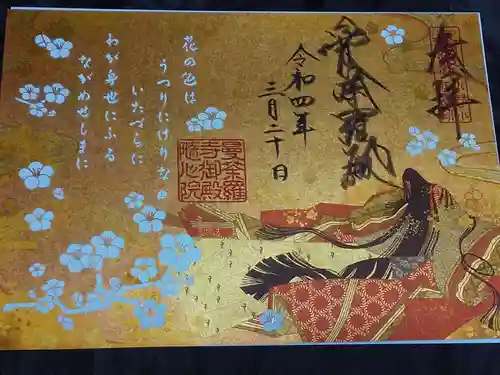 奉拝
令和四年
三月二十日
曼荼羅
寺御殿
隨心院
花の色は
うつりにけりな
いたづらに
わが身世にふる
ながめせしまに